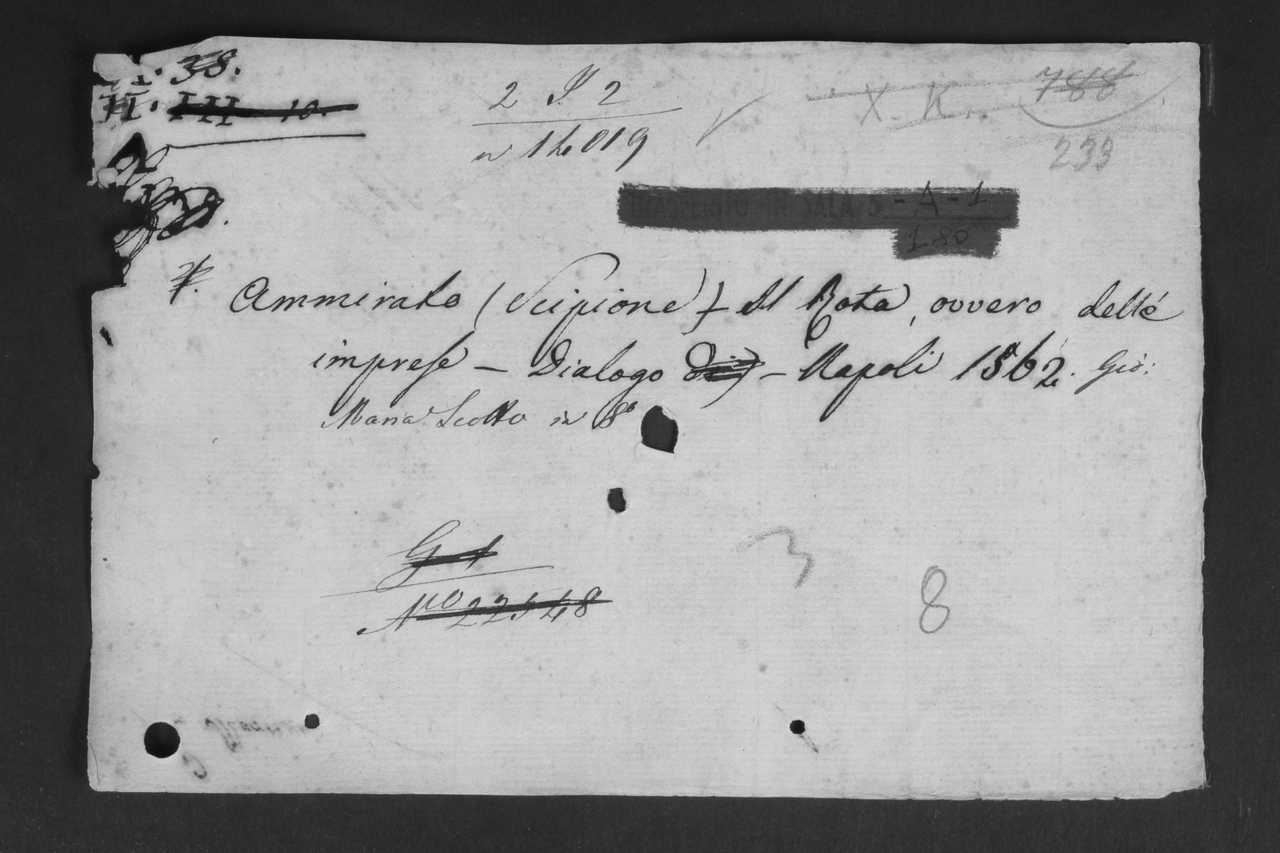 38.
II. III 10.
2 I 2
n 14019
X. K.
788
233
TRASFERITO IN SALA 5 - A - 1
180
Ammirato (Scipione) Il Rota, ovvero delle
imprese – Dialogo – Napoli 1562. Gio:
Maria Scotto in 8º
G 1
Nº 22548
3
8